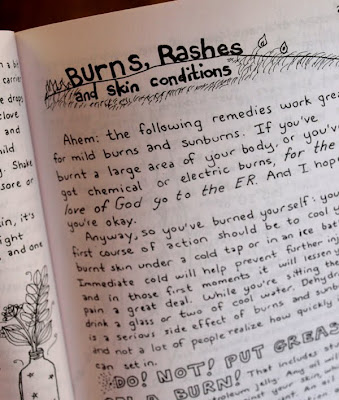 n a b
carries
e drops
clove
and
ild
. Shake
sore or
in, it's
ight
and one
Burns, Rashes
and skin conditions
Ahem: the following remedies work grea
for mild burns and sunburns. If you've
burnt a large area of your body, or you've
got chemical or electric burns, for the
love of God go to the ER. And I hope
you're okay.
Anyway, so you've burned yourself: you
first course of action should be to cool y
burnt skin under a cold tap or in an ice bat
Immediate cold will help prevent further inj
and in those first moments it will lessen y
pain a great deal. While you're sitting the
drink a glass or two of cool water. Dehydr
is a serious side effect of burns and sunb
and not a lot of people realize how quickly
can set in.
DO! NOT! PUT GREAS
ON A BURN! That includes st
petroleum jelly. Any oil will
your skin, wh